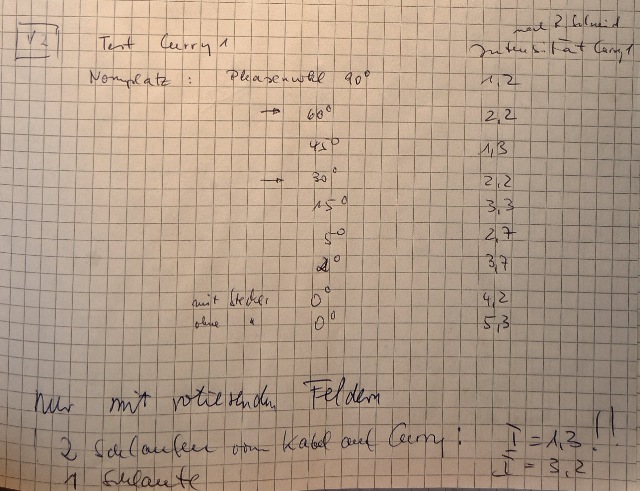 V2
nach 2. Schneid
Test Curry 1
Intensität Curry 1
Normplatz : Phasenwahl 90° 1,2
→ 60° 2,2
45° 1,3
→ 30° 2,2
15° 3,3
5° 2,7
2° 3,7
mit Stecker 0° 4,2
ohne " 0° 5,3
nur mit rotierenden Feldern
2 Schlaufen vom Kabel auf Curry : I = 1,3 !!
1 Schlaufe I = 3,2